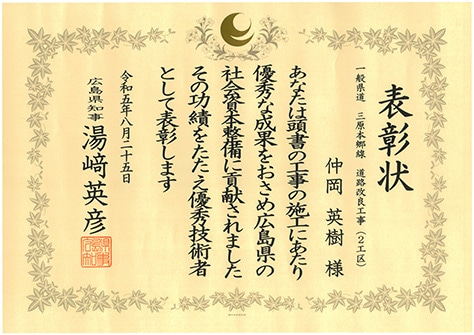 表彰状
一般県道 三原本郷線 道路改良工事(2工区)
仲岡 英樹 様
あなたは頭書の工事の施工にあたり
優秀な成果をおさめ広島県の
社会資本整備に貢献されました
その功績をたたえ優秀技術者
として表彰します
令和五年八月二十五日
広島県知事 湯﨑英彦